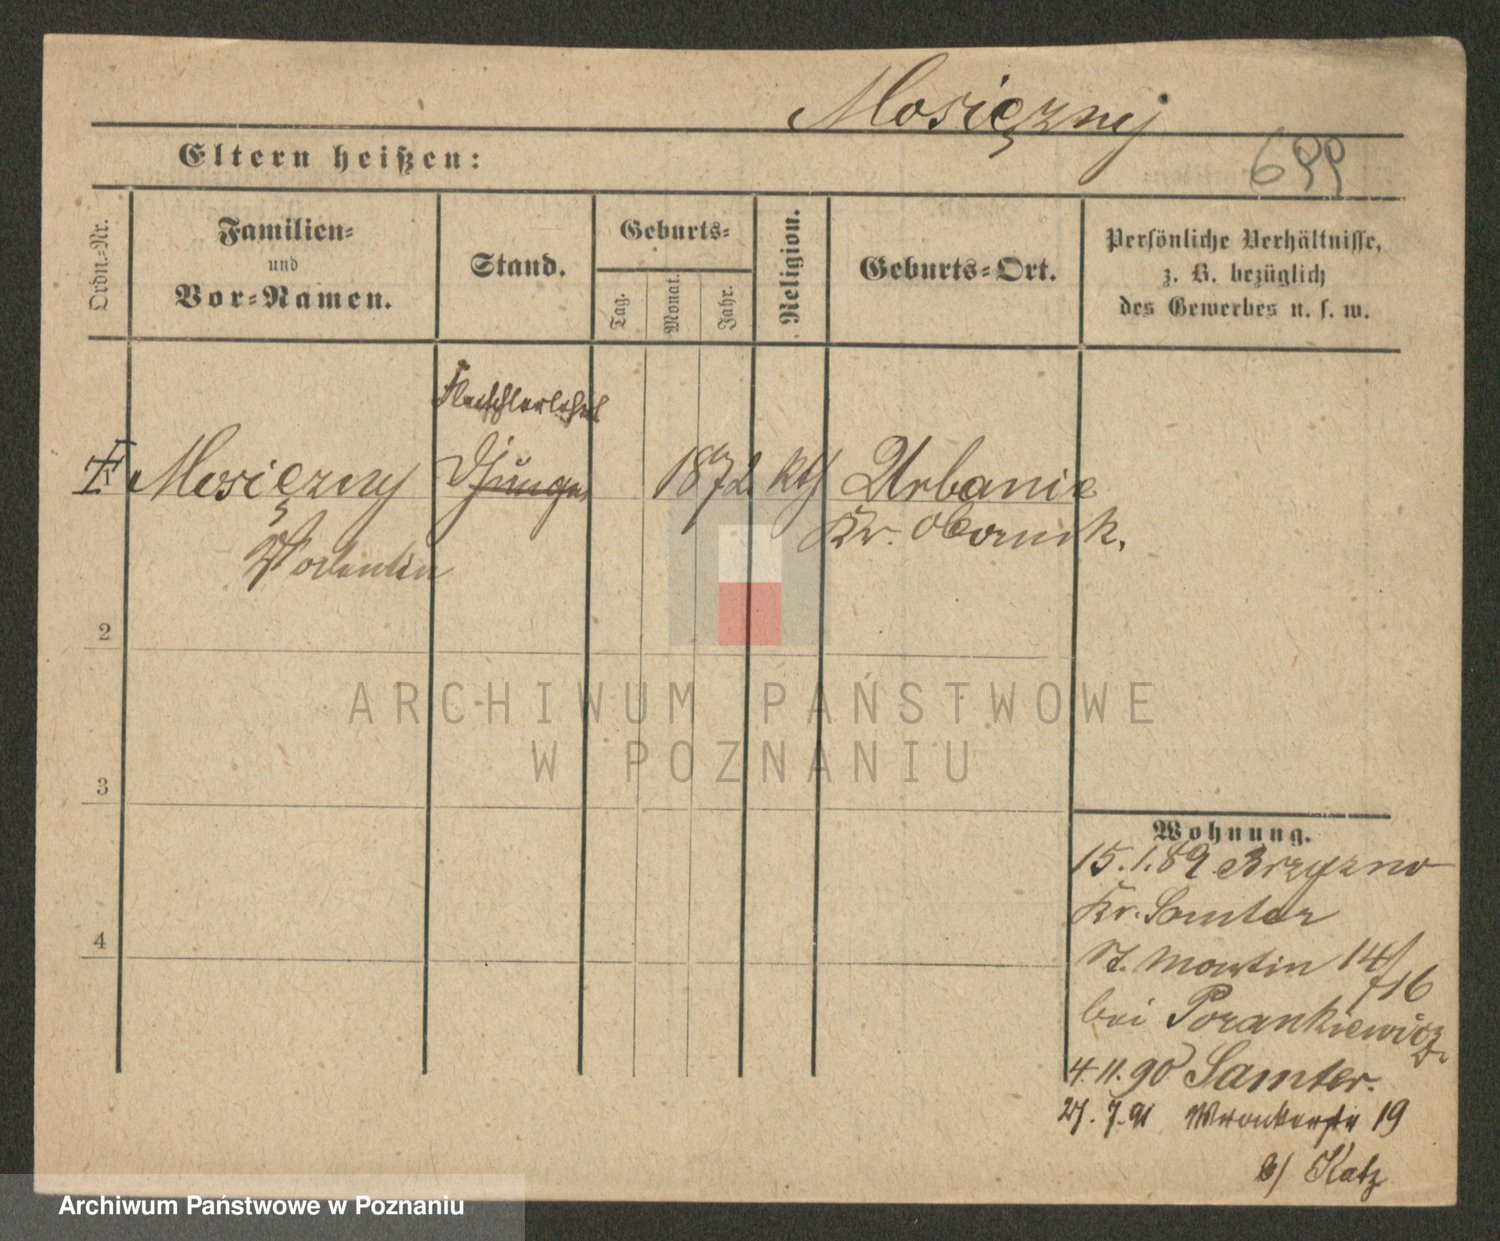 Mosiężny
Eltern heißen:
699
Ordn.-Nr.
Familien-
und
Vor-Namen.
Stand.
Geburts-
Tag.
Monat.
Jahr.
Religion.
Geburts-Ort.
Persönliche Verhältnisse,
z. B. bezüglich
des Gewerbes u. s. w.
Mosiężny
Valentin
Junge
1872
kth
Urbanie
Kr. Obornik.
2
3
4
Wohnung.
15.1.89 Brzezno
Kr. Samter
St. Martin 14/16
bei Porankiewicz
4.11.90 Samter.
27.7.91 Wronkerstr 19
b/ Katz
ARCHIWUM PAŃSTWOWE
W POZNANIU
Archiwum Państwowe w Poznaniu